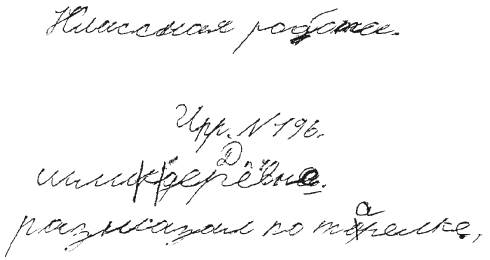 Классная работа.
Упр. N 196.
Деревне.
размазал по тарелке,